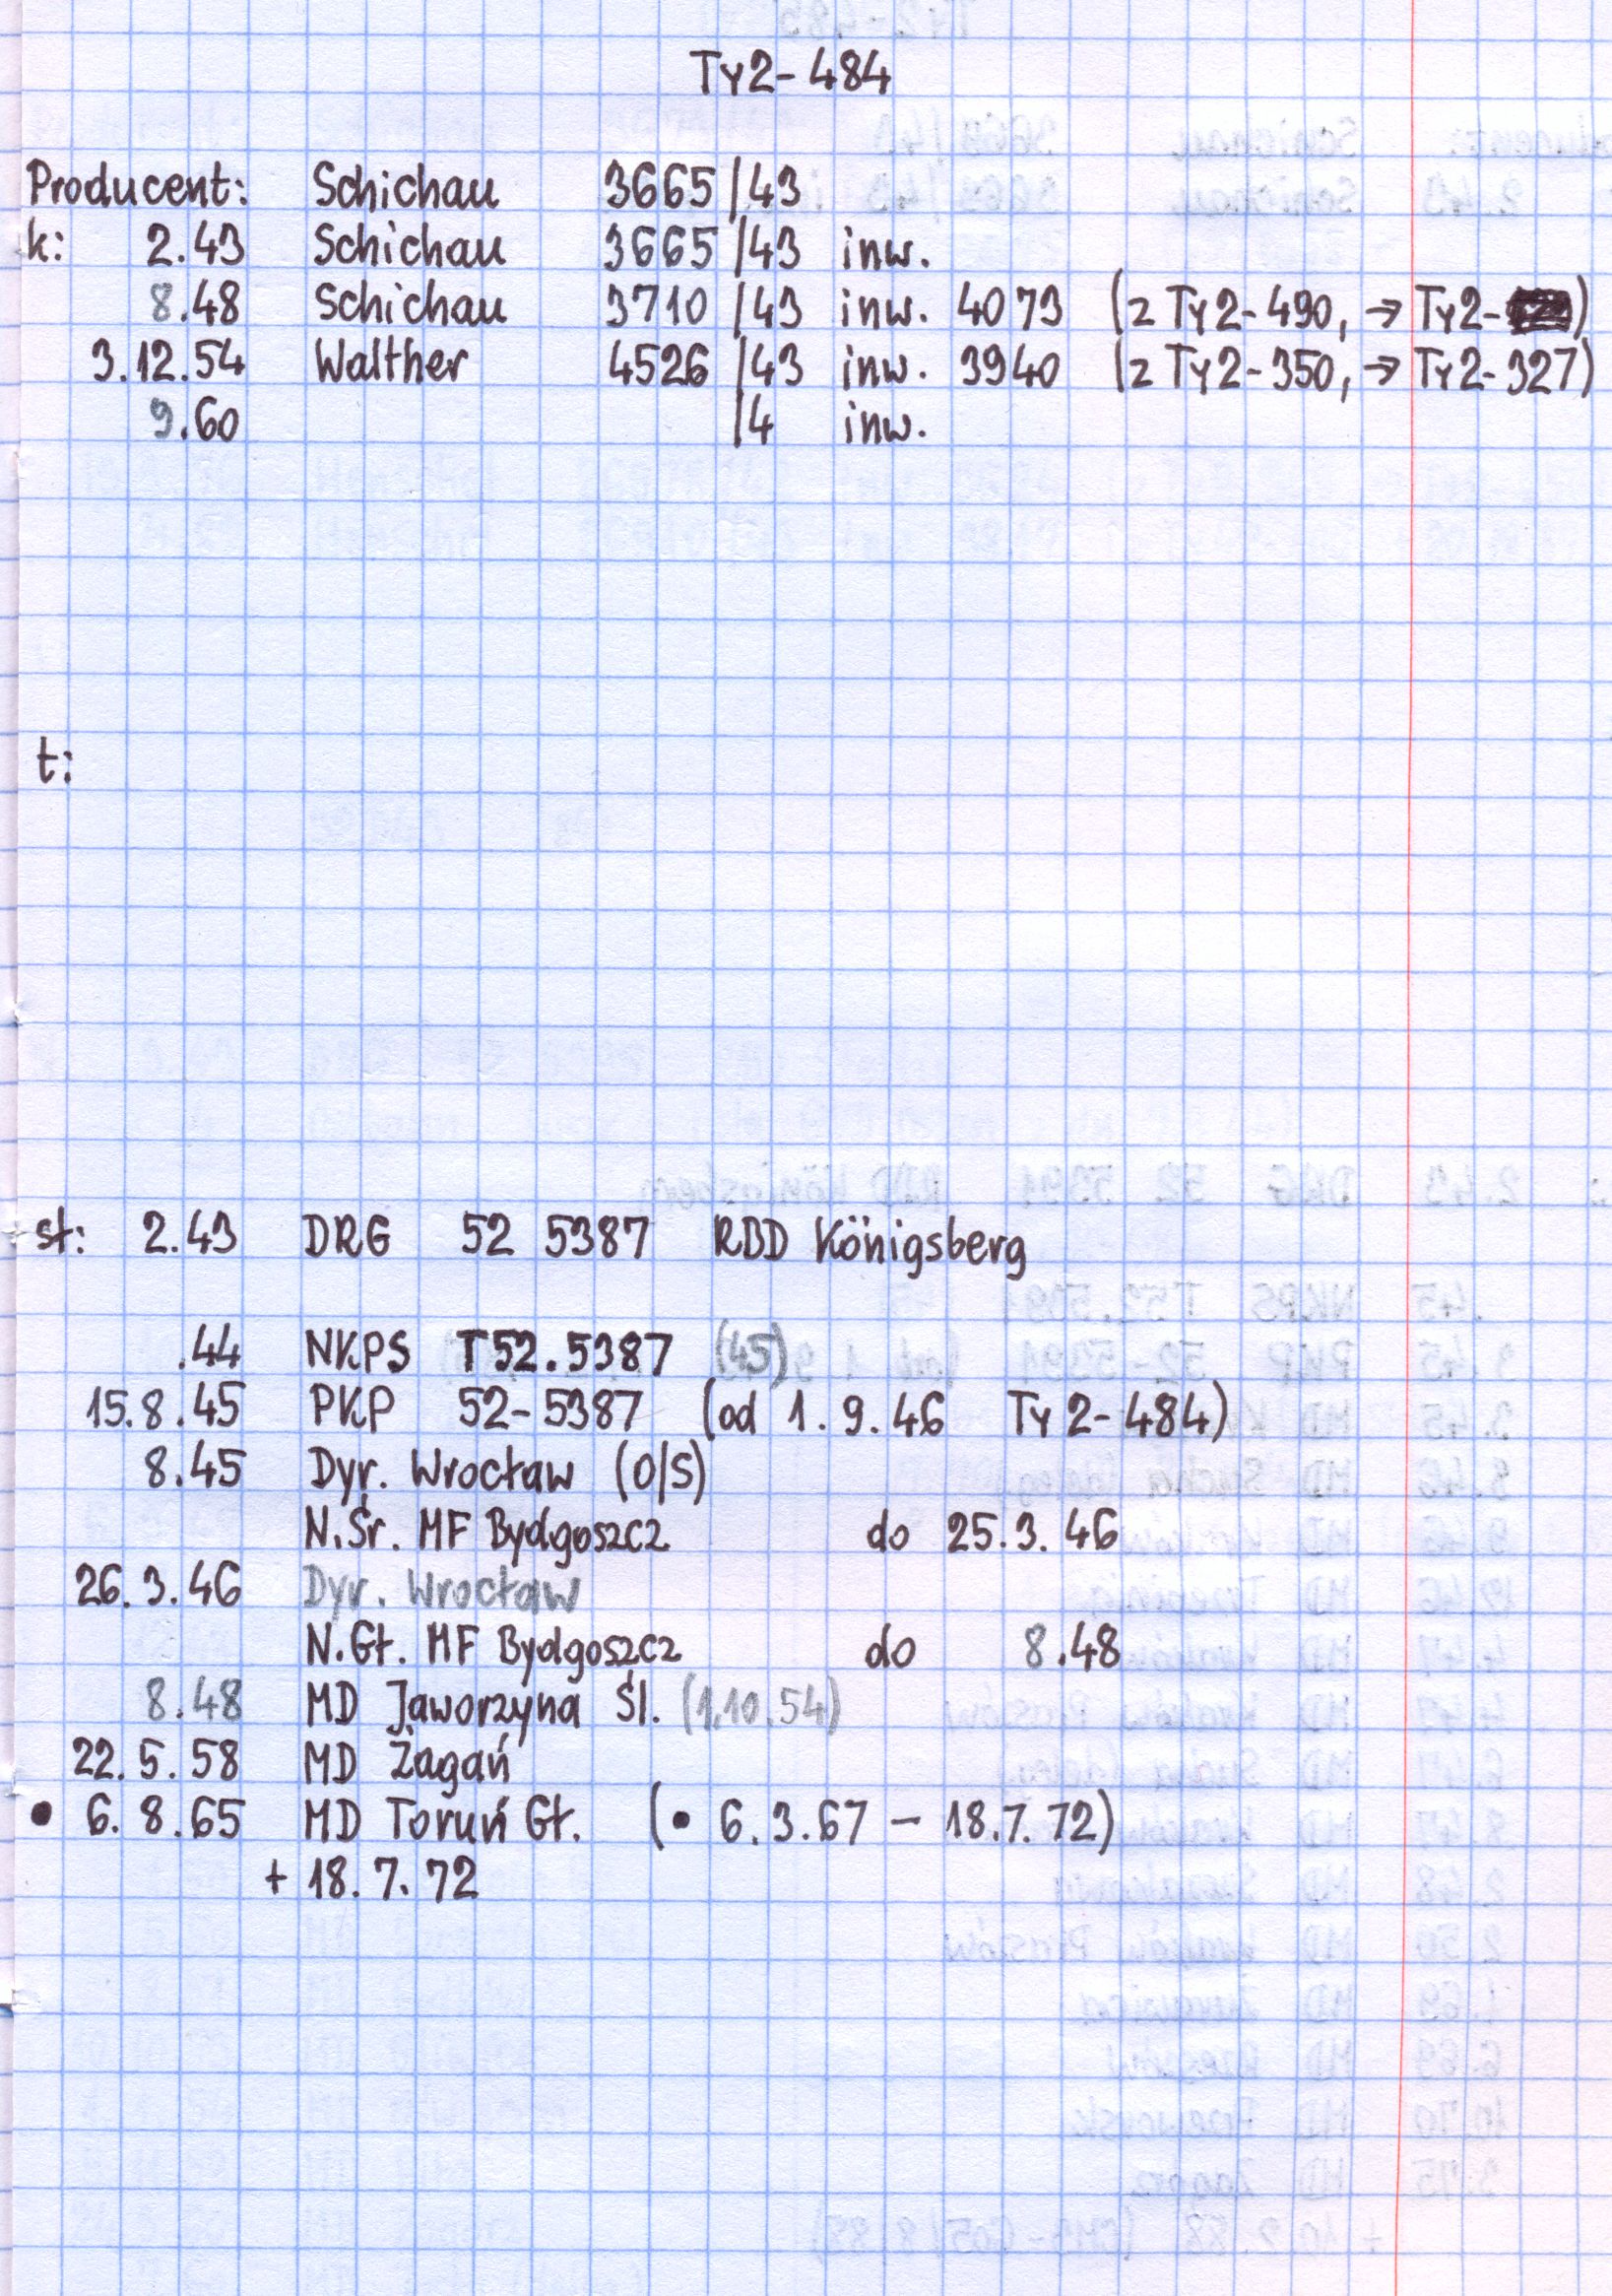 Ty2-484
Producent: Schichau 3665/43
k: 2.43 Schichau 3665/43 inw.
8.48 Schichau 3710/43 inw. 4073 (z Ty2-490, → Ty2-)
3.12.54 Walther 4526/43 inw. 3940 (z Ty2-350, → Ty2-327)
9.60 /4 inw.
t:
st: 2.43 DRG 52 5387 RBD Königsberg
.44 NKPS T52.5387 (45)
15.8.45 PKP 52-5387 (od 1.9.46 Ty2-484)
8.45 Dyr. Wrocław (O/S)
N.Śr. MF Bydgoszcz do 25.3.46
26.3.46 Dyr. Wrocław
N.Gł. MF Bydgoszcz do 8.48
8.48 MD Jaworzyna Śl. (1.10.54)
22.5.58 MD Żagań
• 6.8.65 MD Toruń Gł. (• 6.3.67 – 18.7.72)
+ 18.7.72